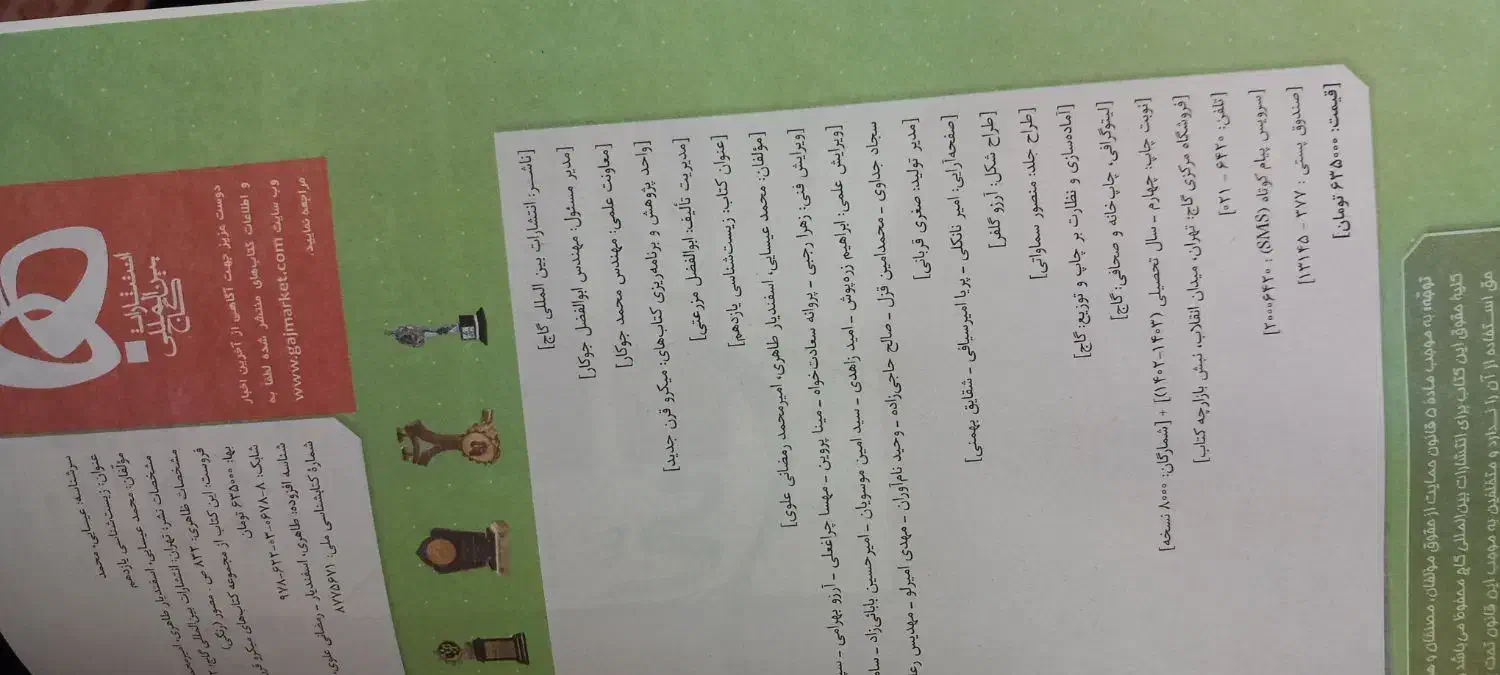 انتشارات
بین‌المللی
گاج
دوست عزیز جهت آگاهی از آخرین اخبار
و اطلاعات کتاب‌های منتشر شده لطفاً به
وب سایت www.gajmarket.com
مراجعه نمایید.
سرشناسه: عیسایی، محمد
عنوان: زیست‌شناسی یازدهم
مؤلفان: محمد عیسایی، اسفندیار طاهری، امیرمحمد
مشخصات نشر: تهران: انتشارات بین‌المللی گاج،
مشخصات ظاهری: ۸۳۲ ص.، مصور (رنگی)
فروست: این کتاب از مجموعه کتاب‌های میکرو
بها: ۶۳۵۰۰۰ تومان
شابک: ۸-۰۶۷۸-۰۳-۶۲۲-۹۷۸
شناسه افزوده: طاهری، اسفندیار - رمضانی علوی،
شمارهٔ کتابشناسی ملی: ۸۷۷۵۶۷۱
[ناشر: انتشارات بین المللی گاج]
[مدیر مسئول: مهندس ابوالفضل جوکار]
[معاونت علمی: مهندس محمد جوکار]
[واحد پژوهش و برنامه‌ریزی کتاب‌های: میکرو قرن جدید]
[مدیریت تألیف: ابوالفضل مزرعتی]
[عنوان کتاب: زیست‌شناسی یازدهم]
[مؤلفان: محمد عیسایی، اسفندیار طاهری، امیرمحمد رمضانی علوی]
[ویرایش فنی: زهرا رجبی - پروانه سعادت‌خواه - مینا پروین - مهسا چراغعلی - آرزو بهرامی -
[ویرایش علمی: ابراهیم زره‌پوش - امید زاهدی - سید امین موسویان - امیرحسین بابائی‌زاد -
سجاد جداوی - محمدامین قزل - صالح حاجی‌زاده - وحید نام‌آوران - مهدی امیرلو - مهدیس
[مدیر تولید: صغری قربانی]
[صفحه‌آرایی: امیر نانکلی - پریا امیرسیافی - شقایق بهمنی]
[طراح شکل: آرزو گلفر]
[طراح جلد: منصور سماواتی]
[آماده‌سازی و نظارت بر چاپ و توزیع: گاج]
[لیتوگرافی، چاپ‌خانه و صحافی: گاج]
[نوبت چاپ: چهارم - سال تحصیلی (۱۴۰۳-۱۴۰۲)] + [شمارگان: ۸۰۰۰ نسخه]
[فروشگاه مرکزی گاج: تهران، میدان انقلاب، نبش بازارچه کتاب]
[تلفن: ۶۴۲۰ - ۰۲۱]
[سرویس پیام کوتاه (SMS) : ۲۰۰۰۶۴۲۰]
[صندوق پستی : ۳۷۷ - ۱۳۱۴۵]
[قیمت: ۶۳۵۰۰۰ تومان]
توجّه: به موجب ماده ۵ قانون حمایت از حقوق مؤلفان، مصنفان و
کلیهٔ حقوق این کتاب برای انتشارات بین‌المللی گاج محفوظ می‌باشد
حق استفاده از آن را ندارد و متخلفین به موجب این قانون تحت